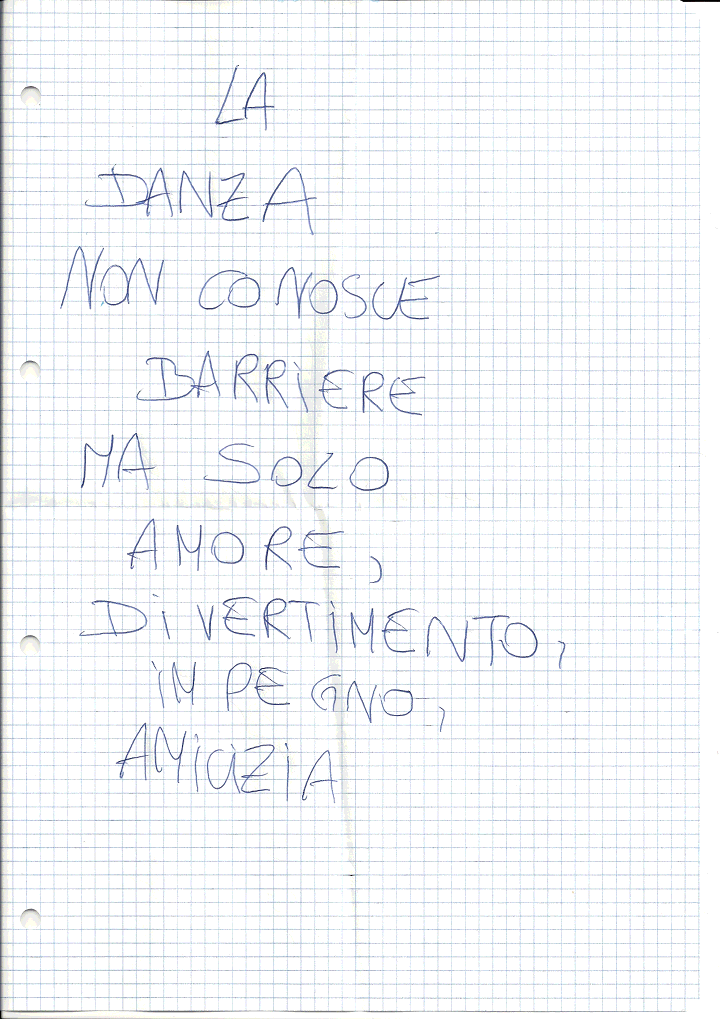 LA
DANZA
NON CONOSCE
BARRiERE
MA SOLO
AMORE,
DiVERTiMENTO,
iMPEGNO,
AMiCiZiA